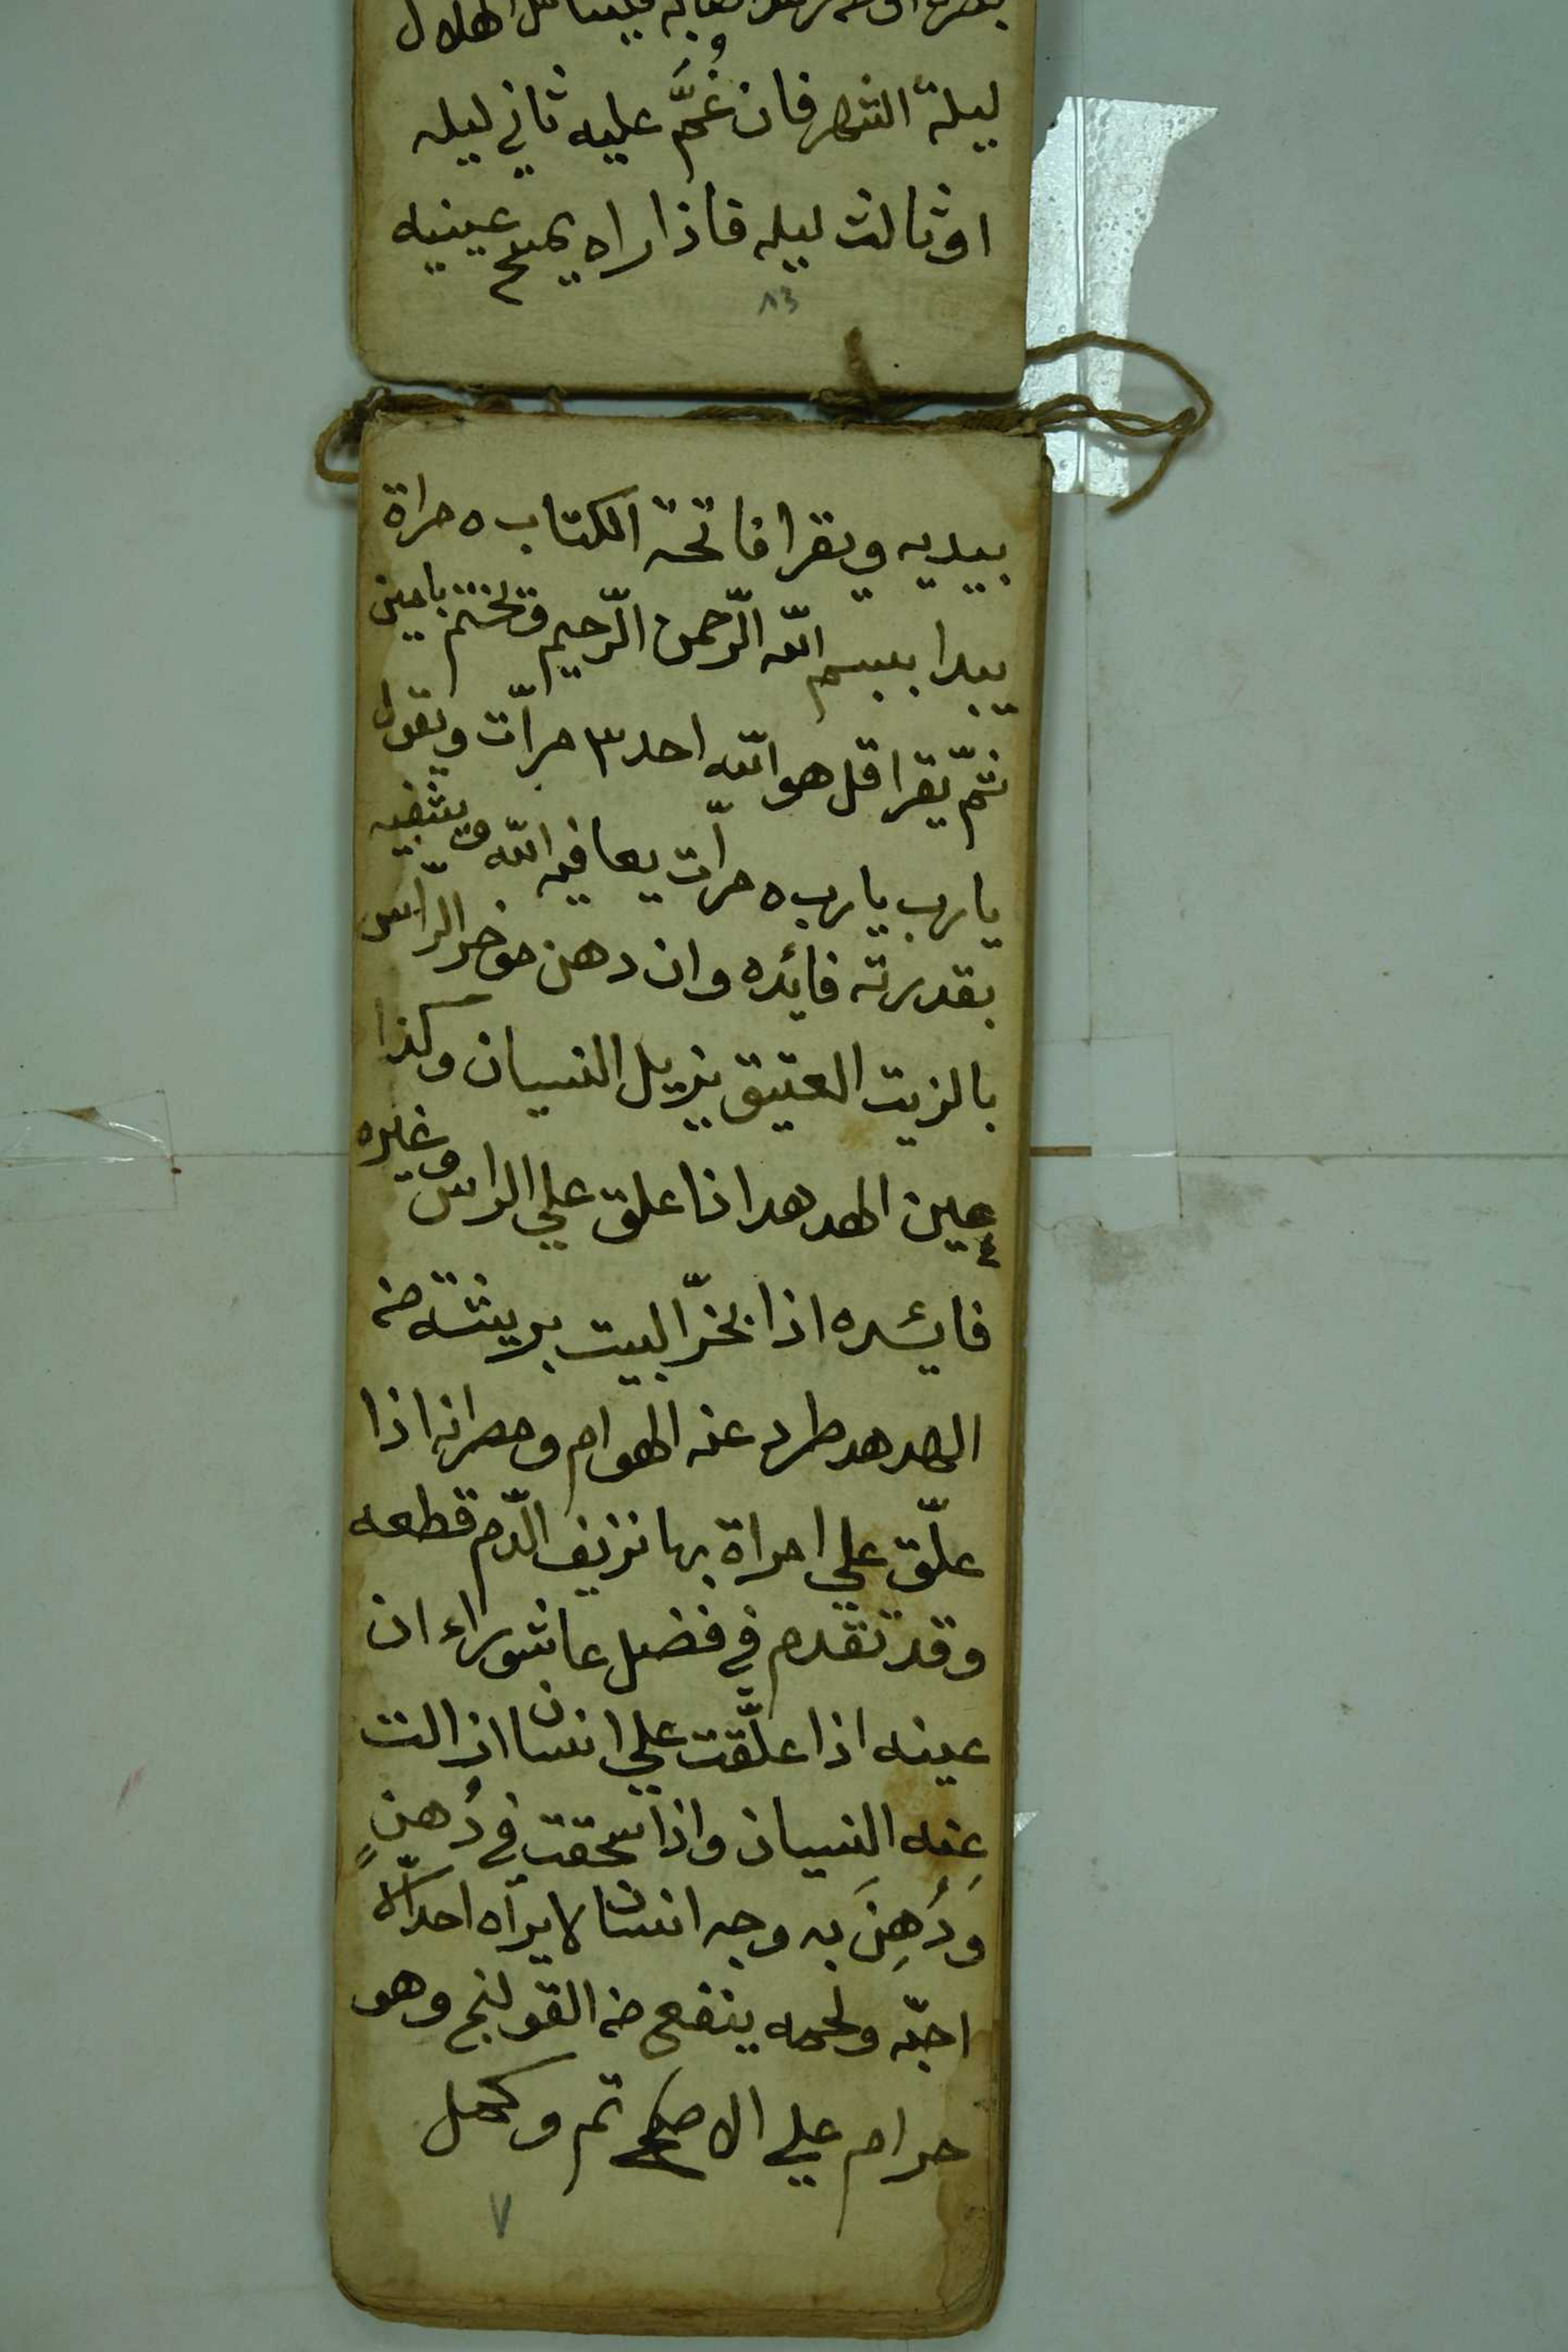 الهلال
ليلة الشهر فان غُمَّ عليه ثاني ليله
او ثالث ليله فاذا راه يمسح عينيه
٨٣
بيديه ويقرا فاتحة الكتاب ٥ مراة
يبدا ببسم اللّه الرّحمن الرّحيم وتختم بامين
ثمّ يقرا قل هو اللّه احد ٣ مرّات ويقول
يا رب يا رب ٥ مرّات يعافيه اللّه ويشفيه
بقدرته فائده وان دهن موخر الرّاس
بالزيت العتيق يزيل النسيان وكذا
عين الهدهد اذا علق علي الراس وغيره
فائده اذا بخّر البيت بريشة من
الهدهد طرد عنه الهوام ومصرانه اذا
علّق علي امراة بها نزيف الدّم قطعه
وقد تقدم في فضل عاشوراء ان
عينه اذا علّقت علي انسان ازالت
عنه النسيان واذا سحقت في دُهنٍ
وَدُهِنَ به وجه انسان لا يراه احد الّا
احبّه ولحمه ينفع من القولنج وهو
حرام علي الاصح تم وكمل
٧